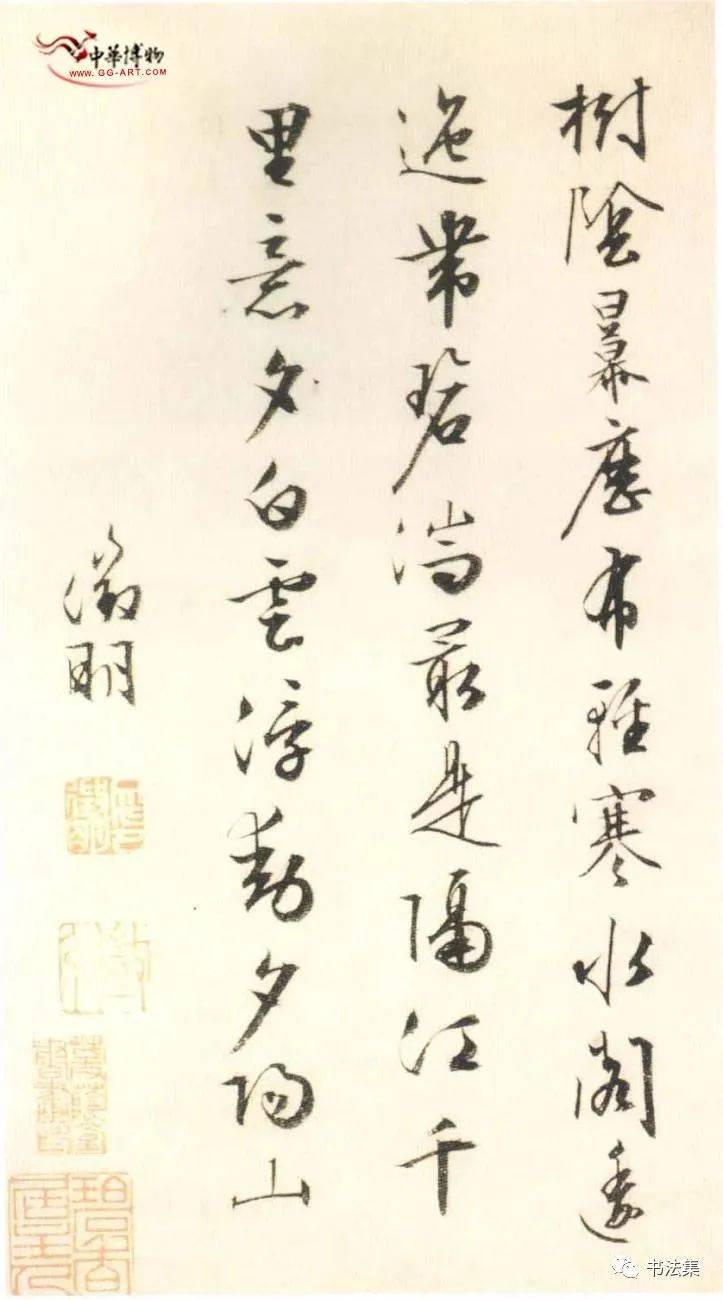 中華博物
WWW.GG-ART.COM
樹陰冪歷布輕寒水閣逶
迤帶碧湍最是隔江千
里意夕白雲浮動夕陽山
徵明
书法集